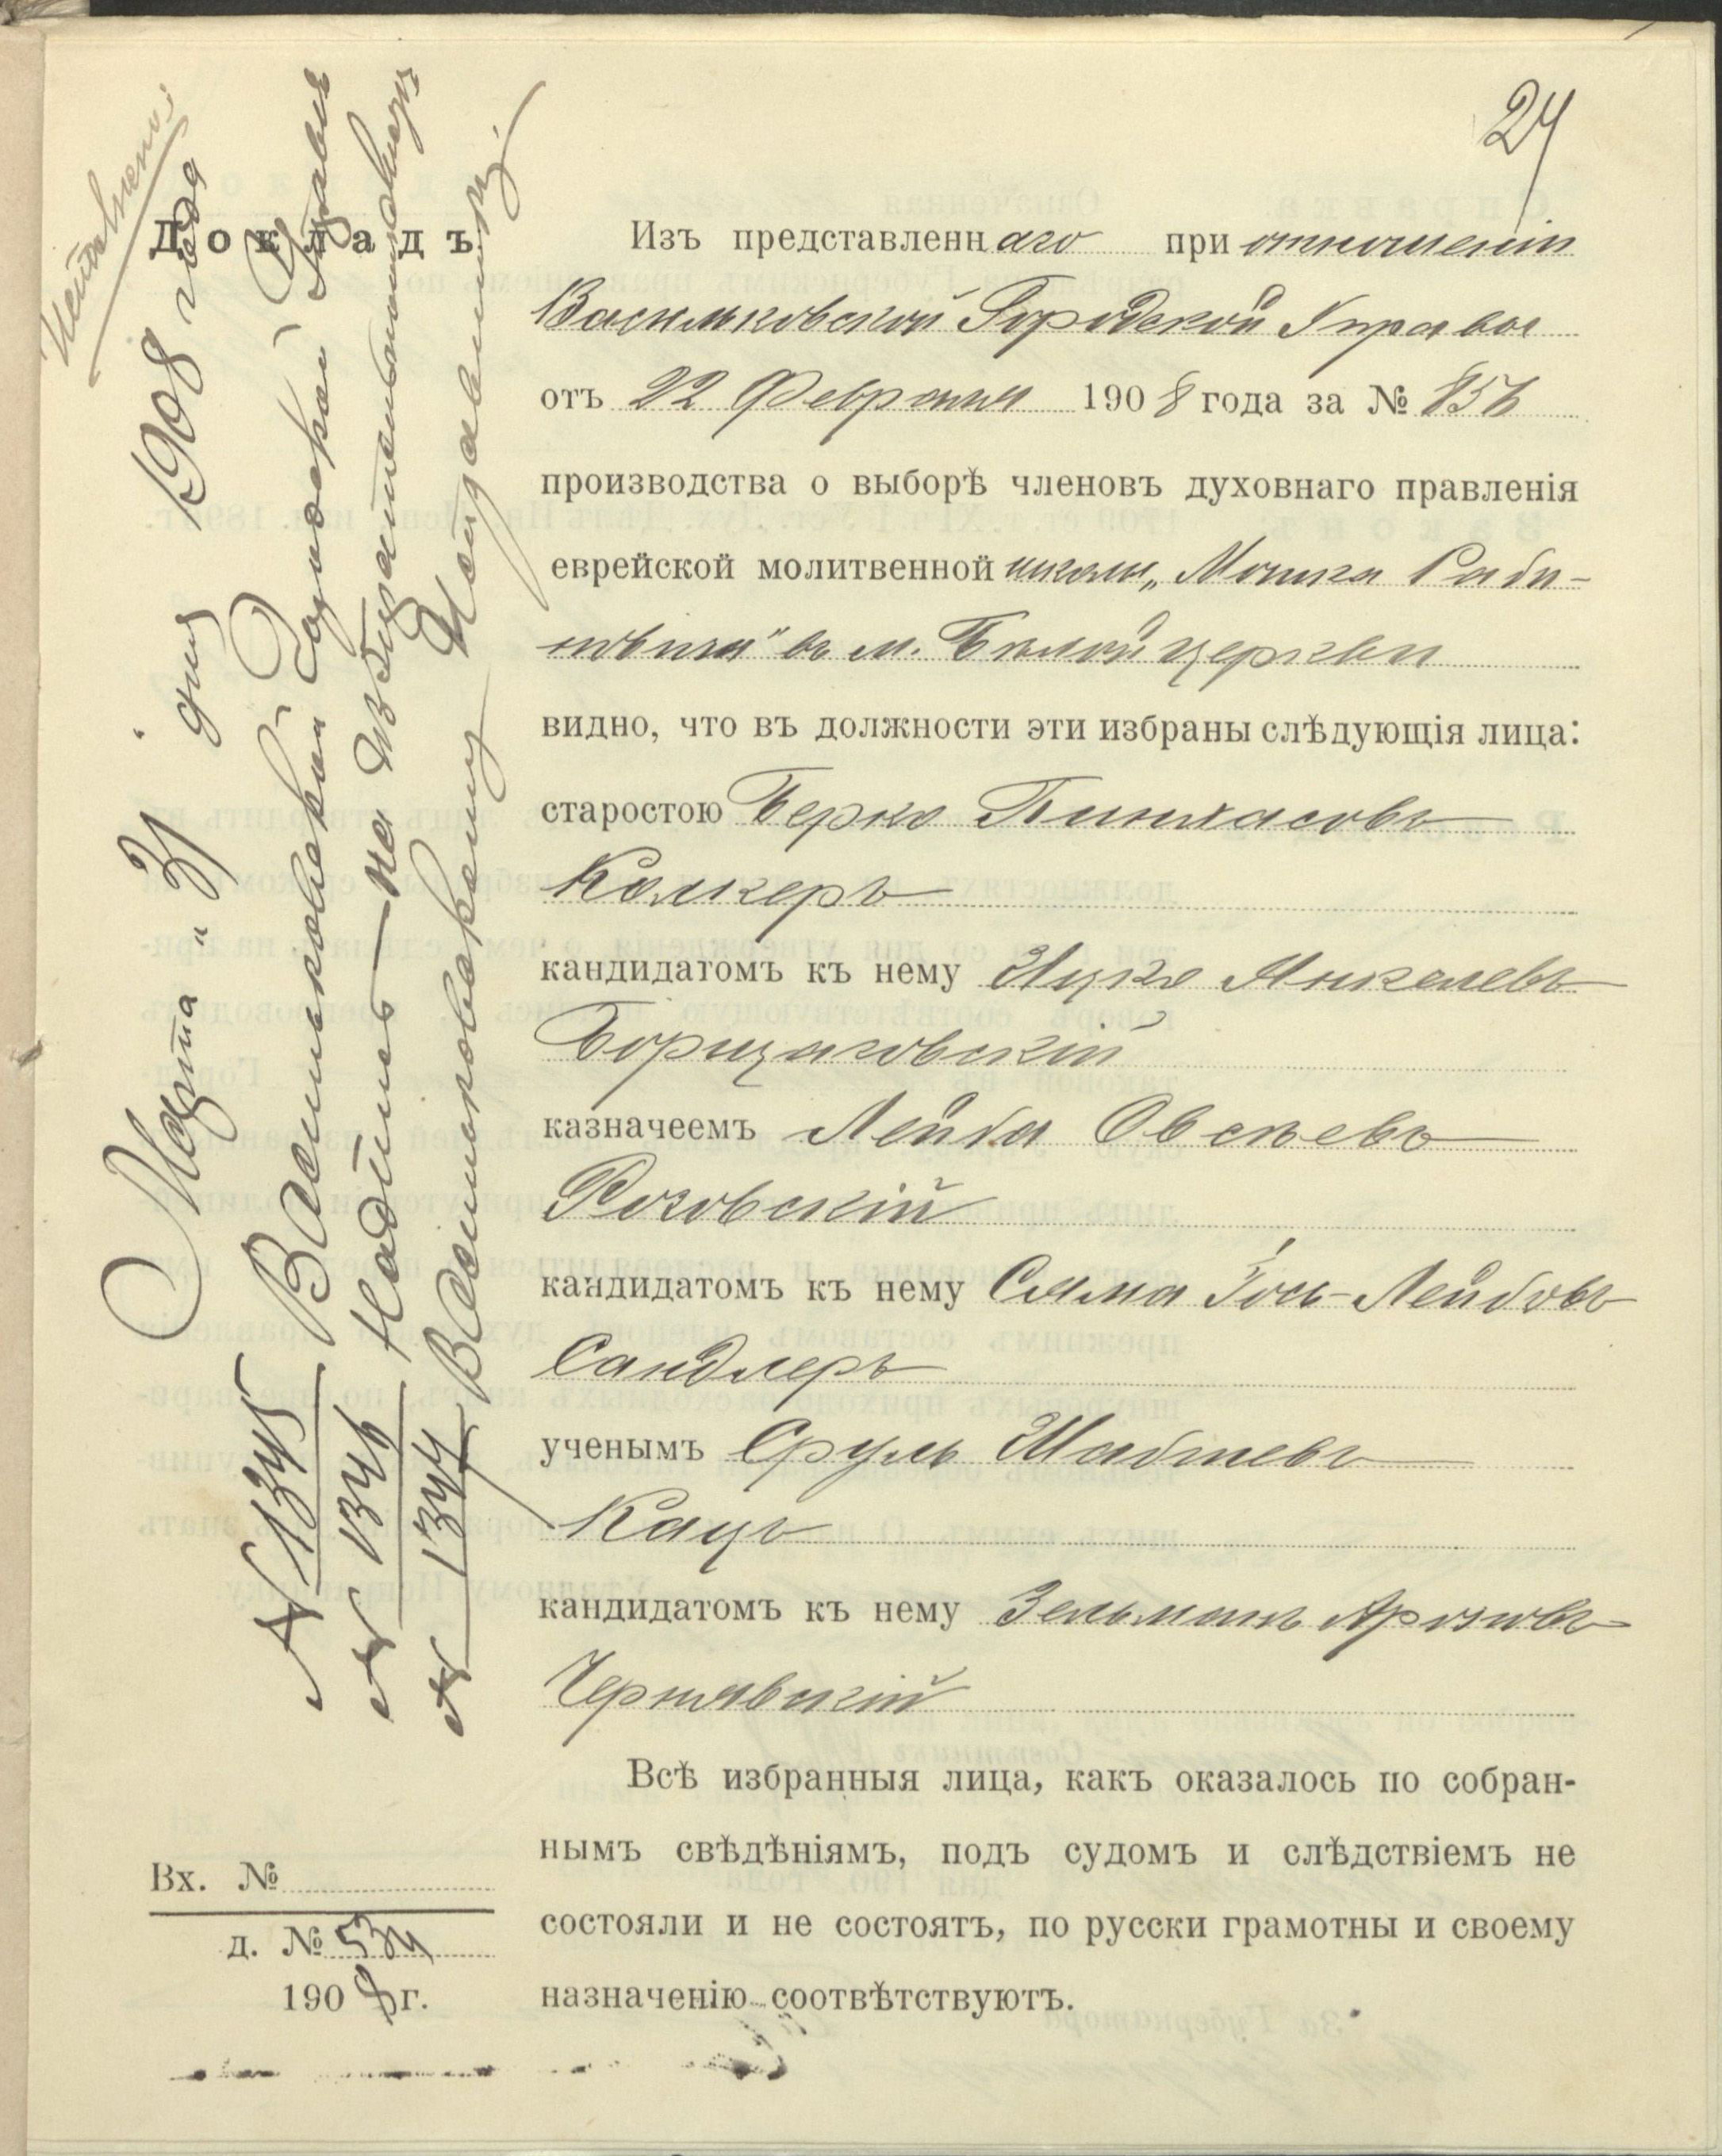 24
Докладъ
Изъ представленнаго при отношеніи
Васильковской Городской Управы
отъ 22 Февраля 1908 года за № 856
производства о выборѣ членовъ духовнаго правленія
еврейской молитвенной школы „Мошка Раби-
новича" въ м. Бѣлой церкви
видно, что въ должности эти избраны слѣдующія лица:
старостою Берко Пинхасовъ
Колкеръ
кандидатомъ къ нему Ицко Янкелевъ
Борщаговскій
казначеемъ Лейба Овсѣевъ
Роговскій
кандидатомъ къ нему Сляма Іось-Лейбовъ
Сандлеръ
ученымъ Сруль Шабтаевъ
Кацъ
кандидатомъ къ нему Зельманъ Ароновъ
Чернявскій
Всѣ избранныя лица, какъ оказалось по собран-
нымъ свѣдѣніямъ, подъ судомъ и слѣдствіемъ не
состояли и не состоятъ, по русски грамотны и своему
назначенію соотвѣтствуютъ.
Марта „31" дня 1908 года
№ 1345 Васильковской Городской Управѣ
№ 1346 Надпись — на
№ 1347 Васильковскому Исправнику
Вх. №
д. № 534
1908 г.